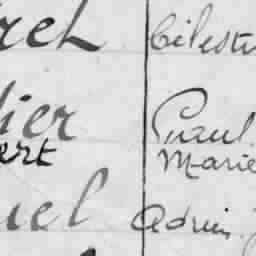 rel Célestin
lier Paul
ert Marie
uel Adrien